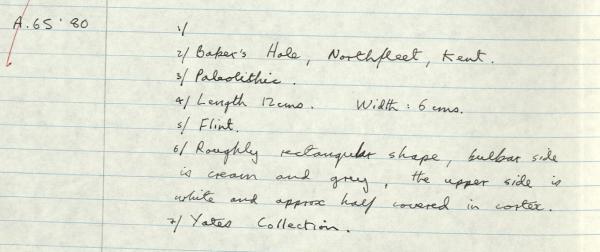 A.65'80
1/
2/ Baker's Hole, Northfleet, Kent.
3/ Paleolithic.
4/ Length 12cms. Width: 6 cms.
5/ Flint.
6/ Roughly rectangular shape, bulbar side
is cream and grey, the upper side is
white and approx half covered in cortex.
7/ Yates Collection.